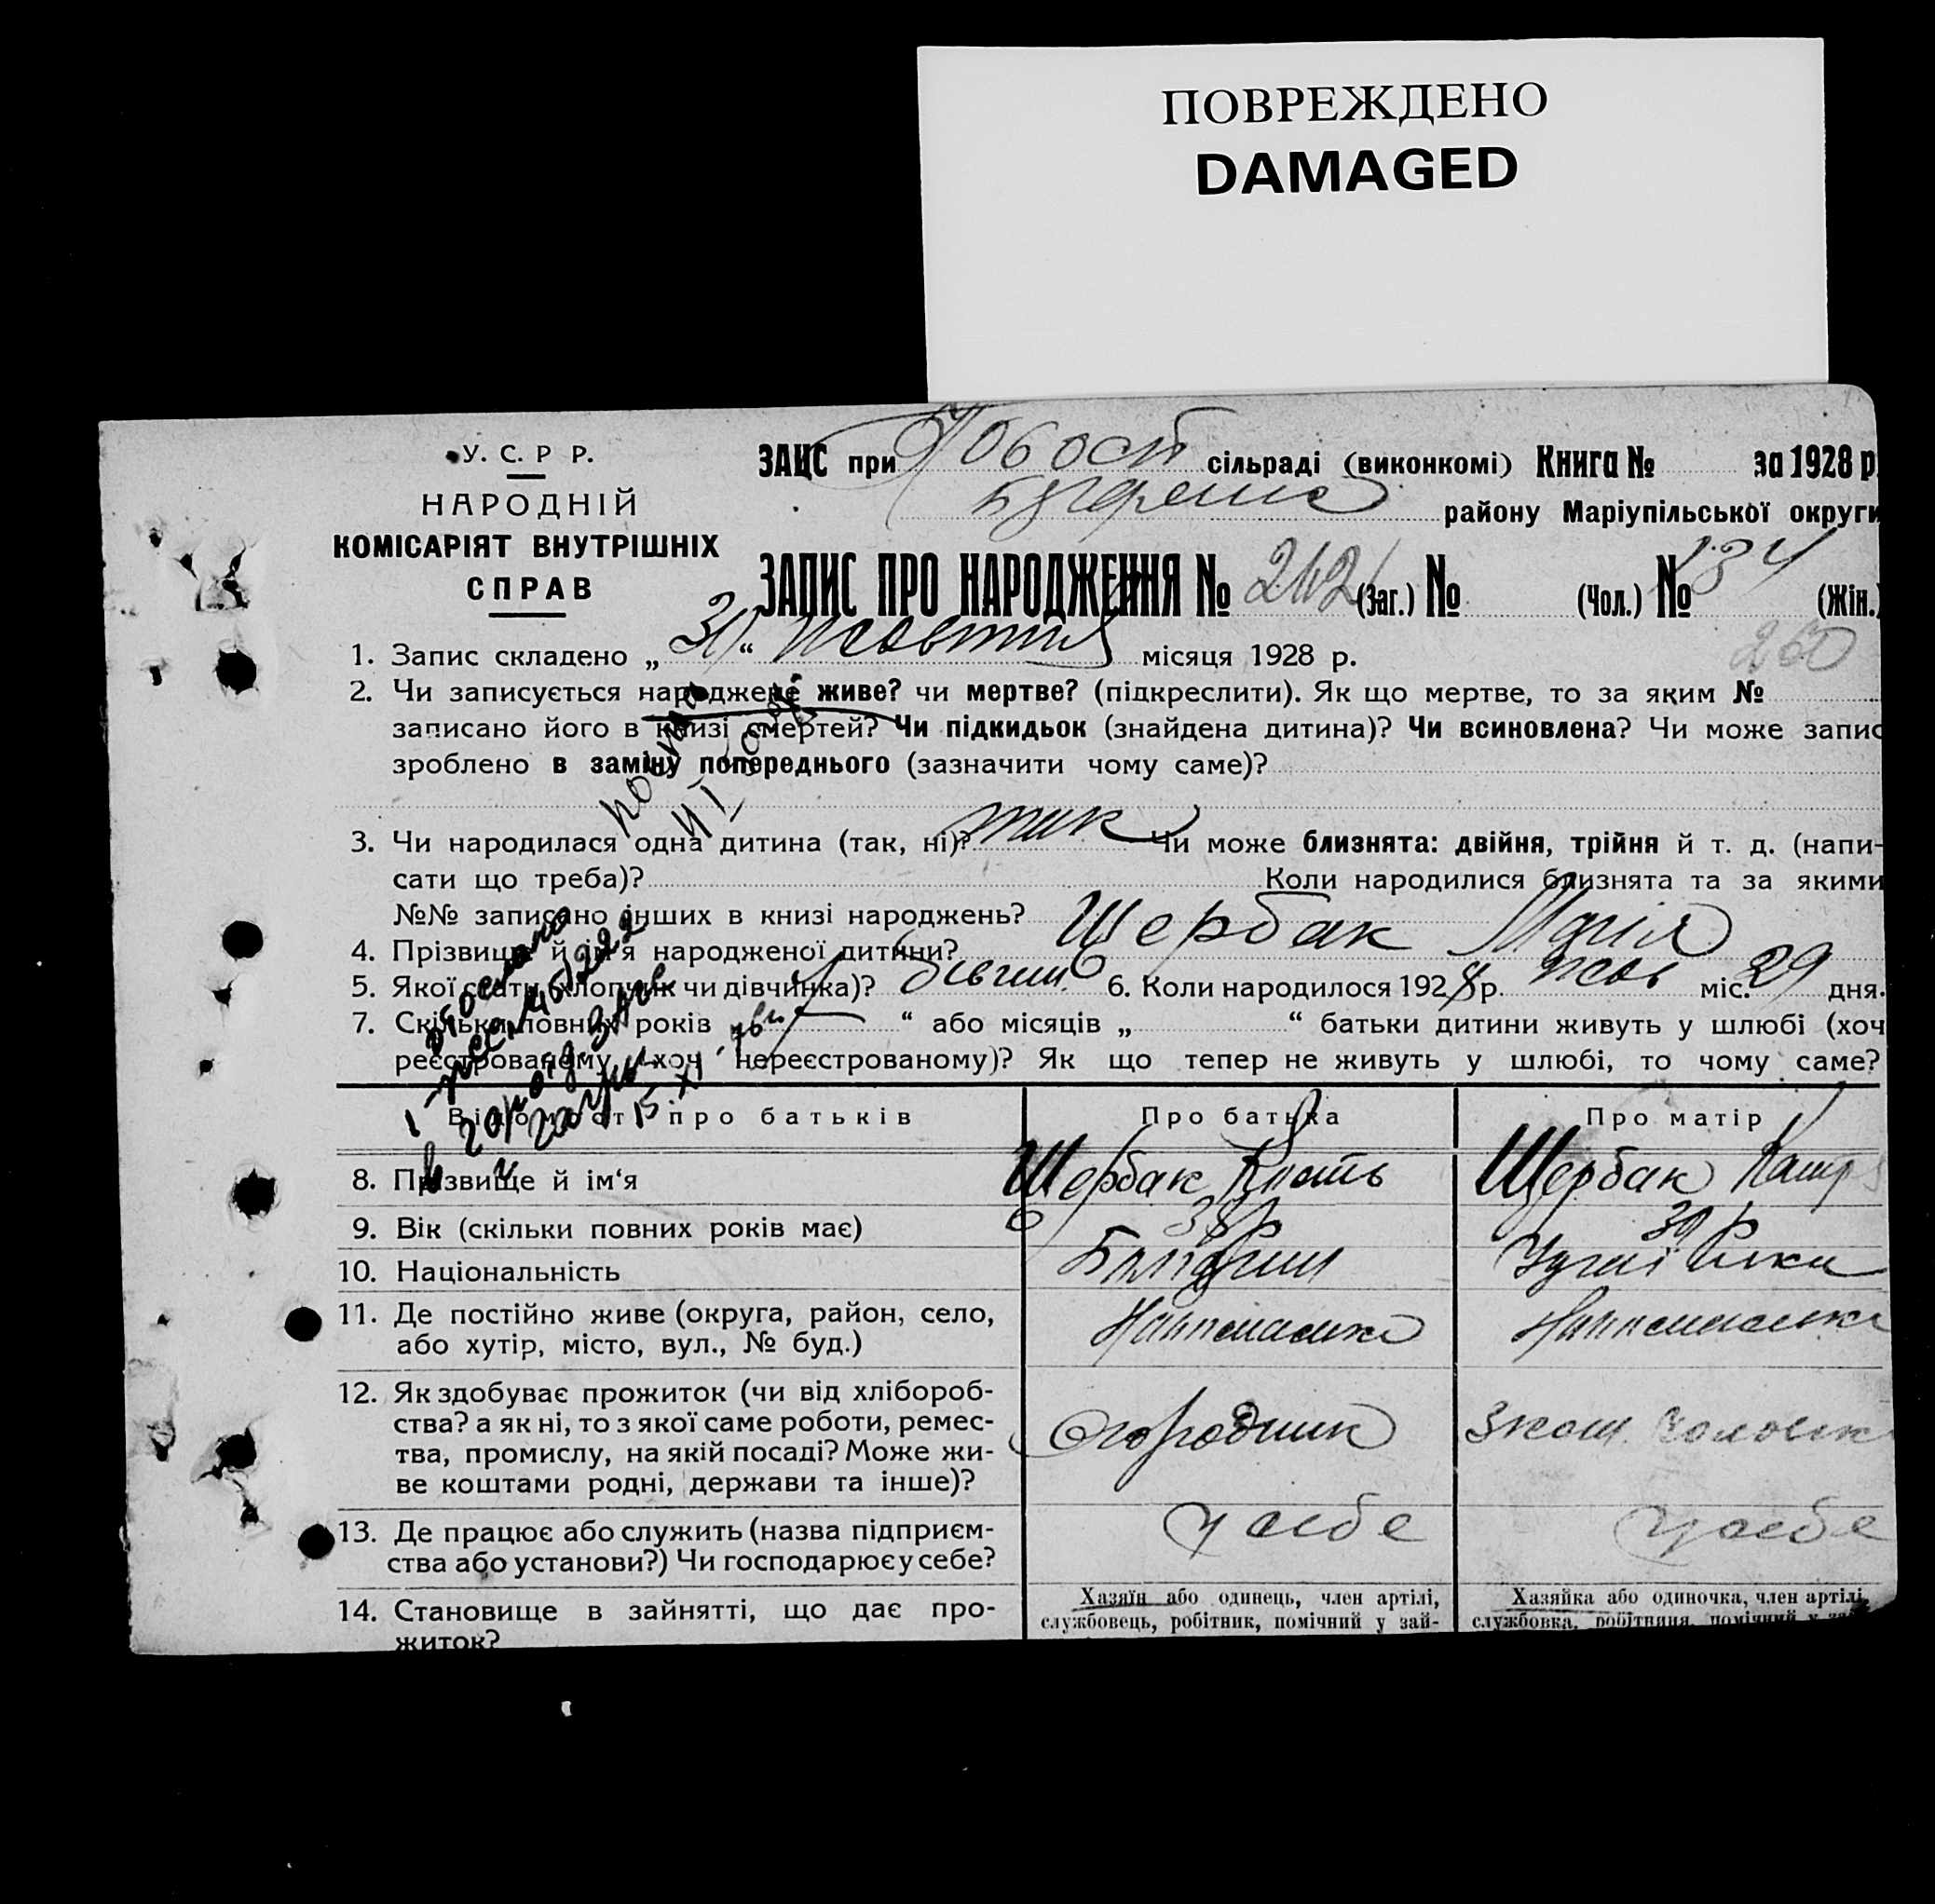 ПОВРЕЖДЕНО
DAMAGED
У. С. Р Р.
НАРОДНІЙ
КОМІСАРІЯТ ВНУТРІШНІХ
СПРАВ
ЗАЦС при сільраді (виконкомі) Книга № за 1928 р.
району Маріупільської округи
ЗАПИС ПРО НАРОДЖЕННЯ № 242 (Заг.) № (Чол.) № 134 (Жін.)
260
1. Запис складено „ 31 “ жовтня місяця 1928 р.
2. Чи записується народжене живе? чи мертве? (підкреслити). Як що мертве, то за яким №
записано його в книзі смертей? Чи підкидьок (знайдена дитина)? Чи всиновлена? Чи може запис
зроблено в заміну попереднього (зазначити чому саме)?
3. Чи народилася одна дитина (так, ні)? так Чи може близнята: двійня, трійня й т. д. (напи-
сати що треба)? Коли народилися близнята та за якими
№№ записано інших в книзі народжень?
4. Прізвище й ім‘я народженої дитини? Щербак Марія
5. Якої стати (хлопчик чи дівчинка)? дівчин. 6. Коли народилося 1928 р. жов міс. 29 дня.
7. Скільки повних років “ або місяців „ “ батьки дитини живуть у шлюбі (хоч
реєстрованому хоч нереєстрованому)? Як що тепер не живуть у шлюбі, то чому саме?
Відомості про батьків Про батька Про матір
8. Прізвище й ім‘я Щербак Кость Щербак
9. Вік (скільки повних років має) 38 р 39 р
10. Національність
11. Де постійно живе (округа, район, село,
або хутір, місто, вул., № буд.)
12. Як здобуває прожиток (чи від хлібороб-
ства? а як ні, то з якої саме роботи, ремес-
тва, промислу, на якій посаді? Може жи-
ве коштами родні, держави та інше)?
Огородник
13. Де працює або служить (назва підприєм-
ства або установи?) Чи господарює у себе?
у себе у себе
14. Становище в зайнятті, що дає про-
житок?
Хазяїн або одинець, член артілі,
службовець, робітник, помічний у зай-
Хазяйка або одиночка, член артілі,
службовка, робітниця, помічний у зай-